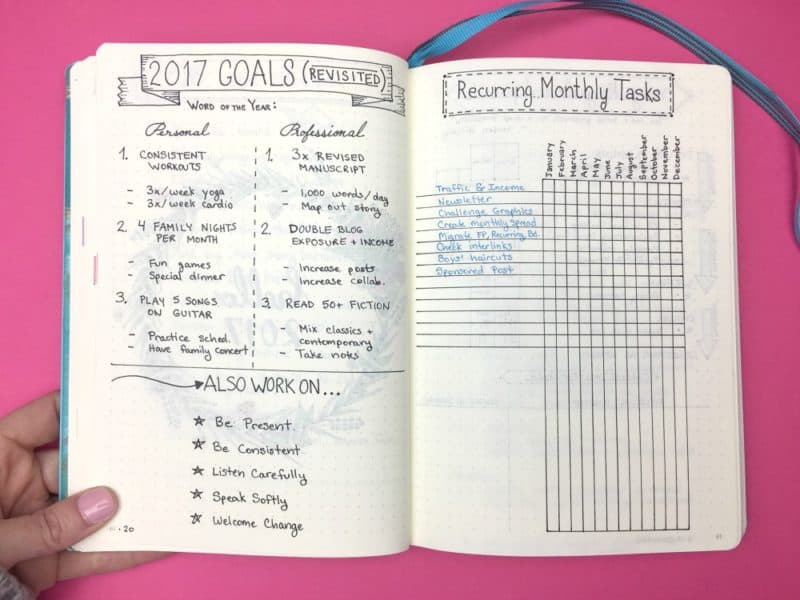 2017 GOALS (REVISITED)
WORD OF THE YEAR:
Personal
1. CONSISTENT
WORKOUTS
- 3x/week yoga
- 3x/week cardio
2. 4 FAMILY NIGHTS
PER MONTH
- Fun games
- Special dinner
3. PLAY 5 SONGS
ON GUITAR
- Practice sched.
- Have family concert
Professional
1. 3x REVISED
MANUSCRIPT
- 1,000 words/day
- Map out story
2. DOUBLE BLOG
EXPOSURE + INCOME
- Increase posts
- Increase collab.
3. READ 50+ FICTION
- Mix classics +
contemporary
- Take notes
ALSO WORK ON...
☆ Be Present
☆ Be Consistent
☆ Listen Carefully
☆ Speak Softly
☆ Welcome Change
20
Recurring Monthly Tasks
January
February
March
April
May
June
July
August
September
October
November
December
Traffic & Income
Newsletter
Challenge Graphics
Create monthly Spread
Migrate FP, Recurring, Bd.
Check interlinks
Boys' haircuts
Sponsored Post